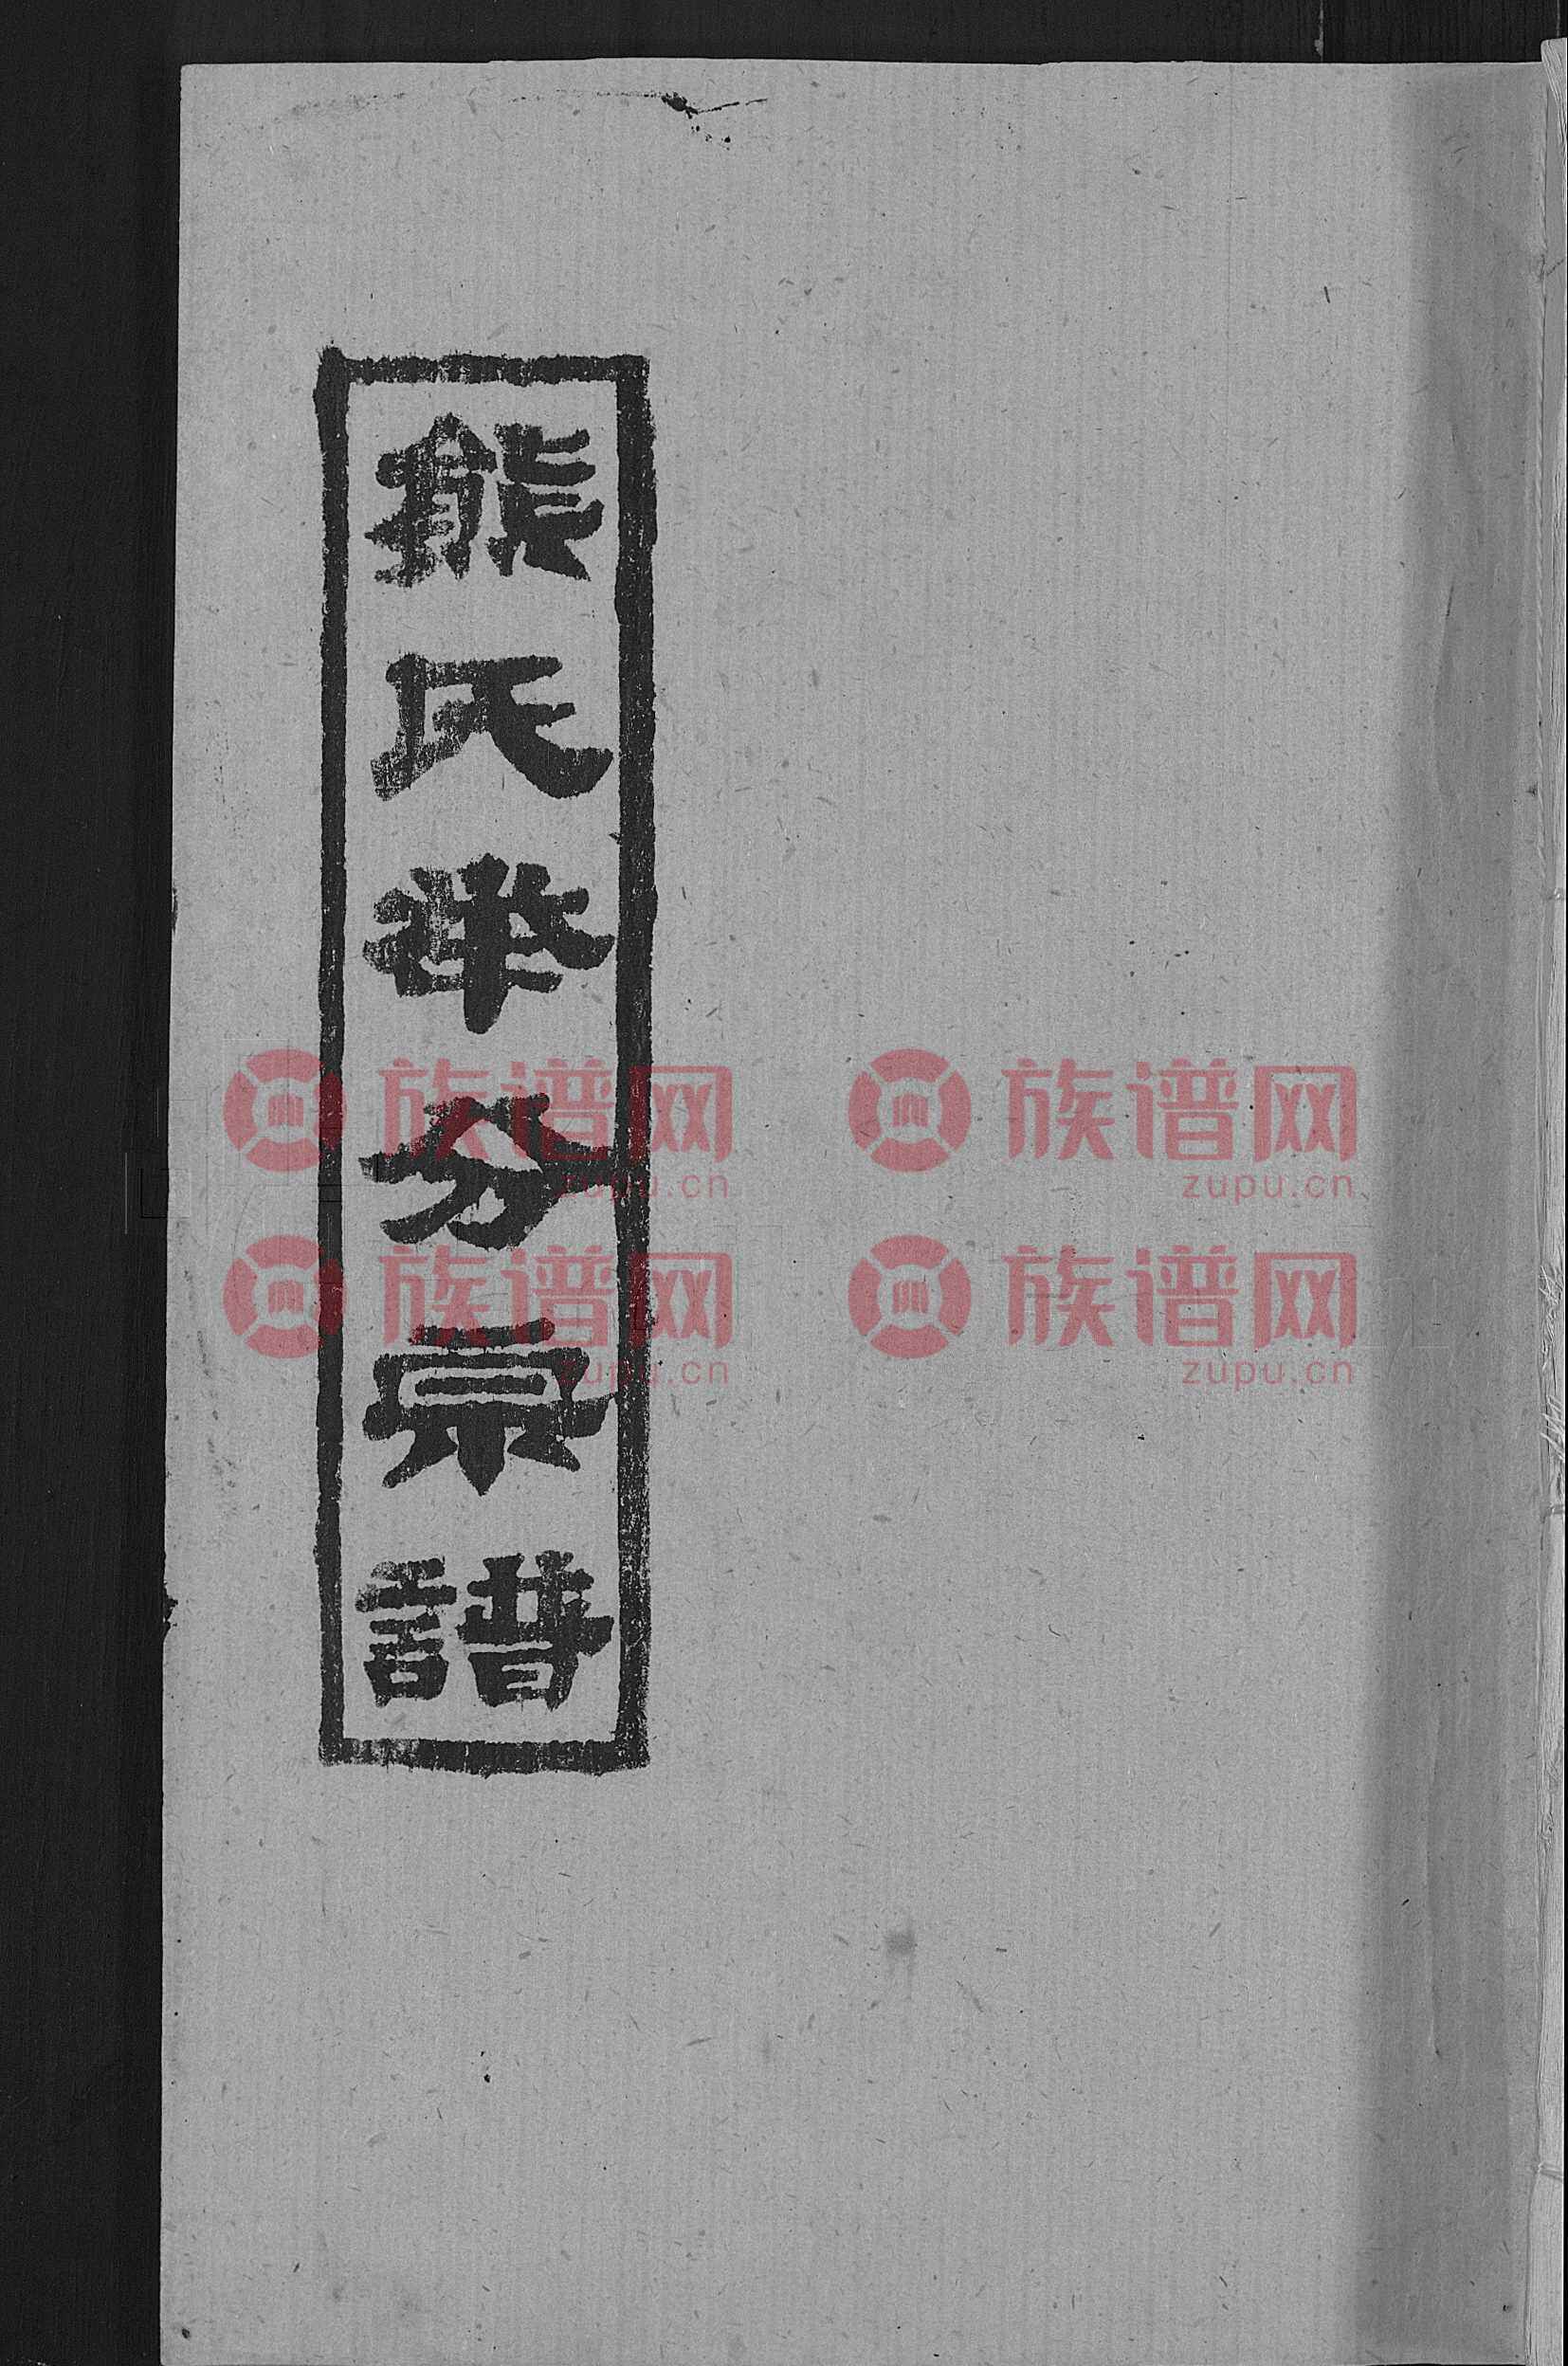 熊氏举分宗譜
族谱网
zupu.cn
族谱网
zupu.cn
族谱网
zupu.cn
族谱网
zupu.cn